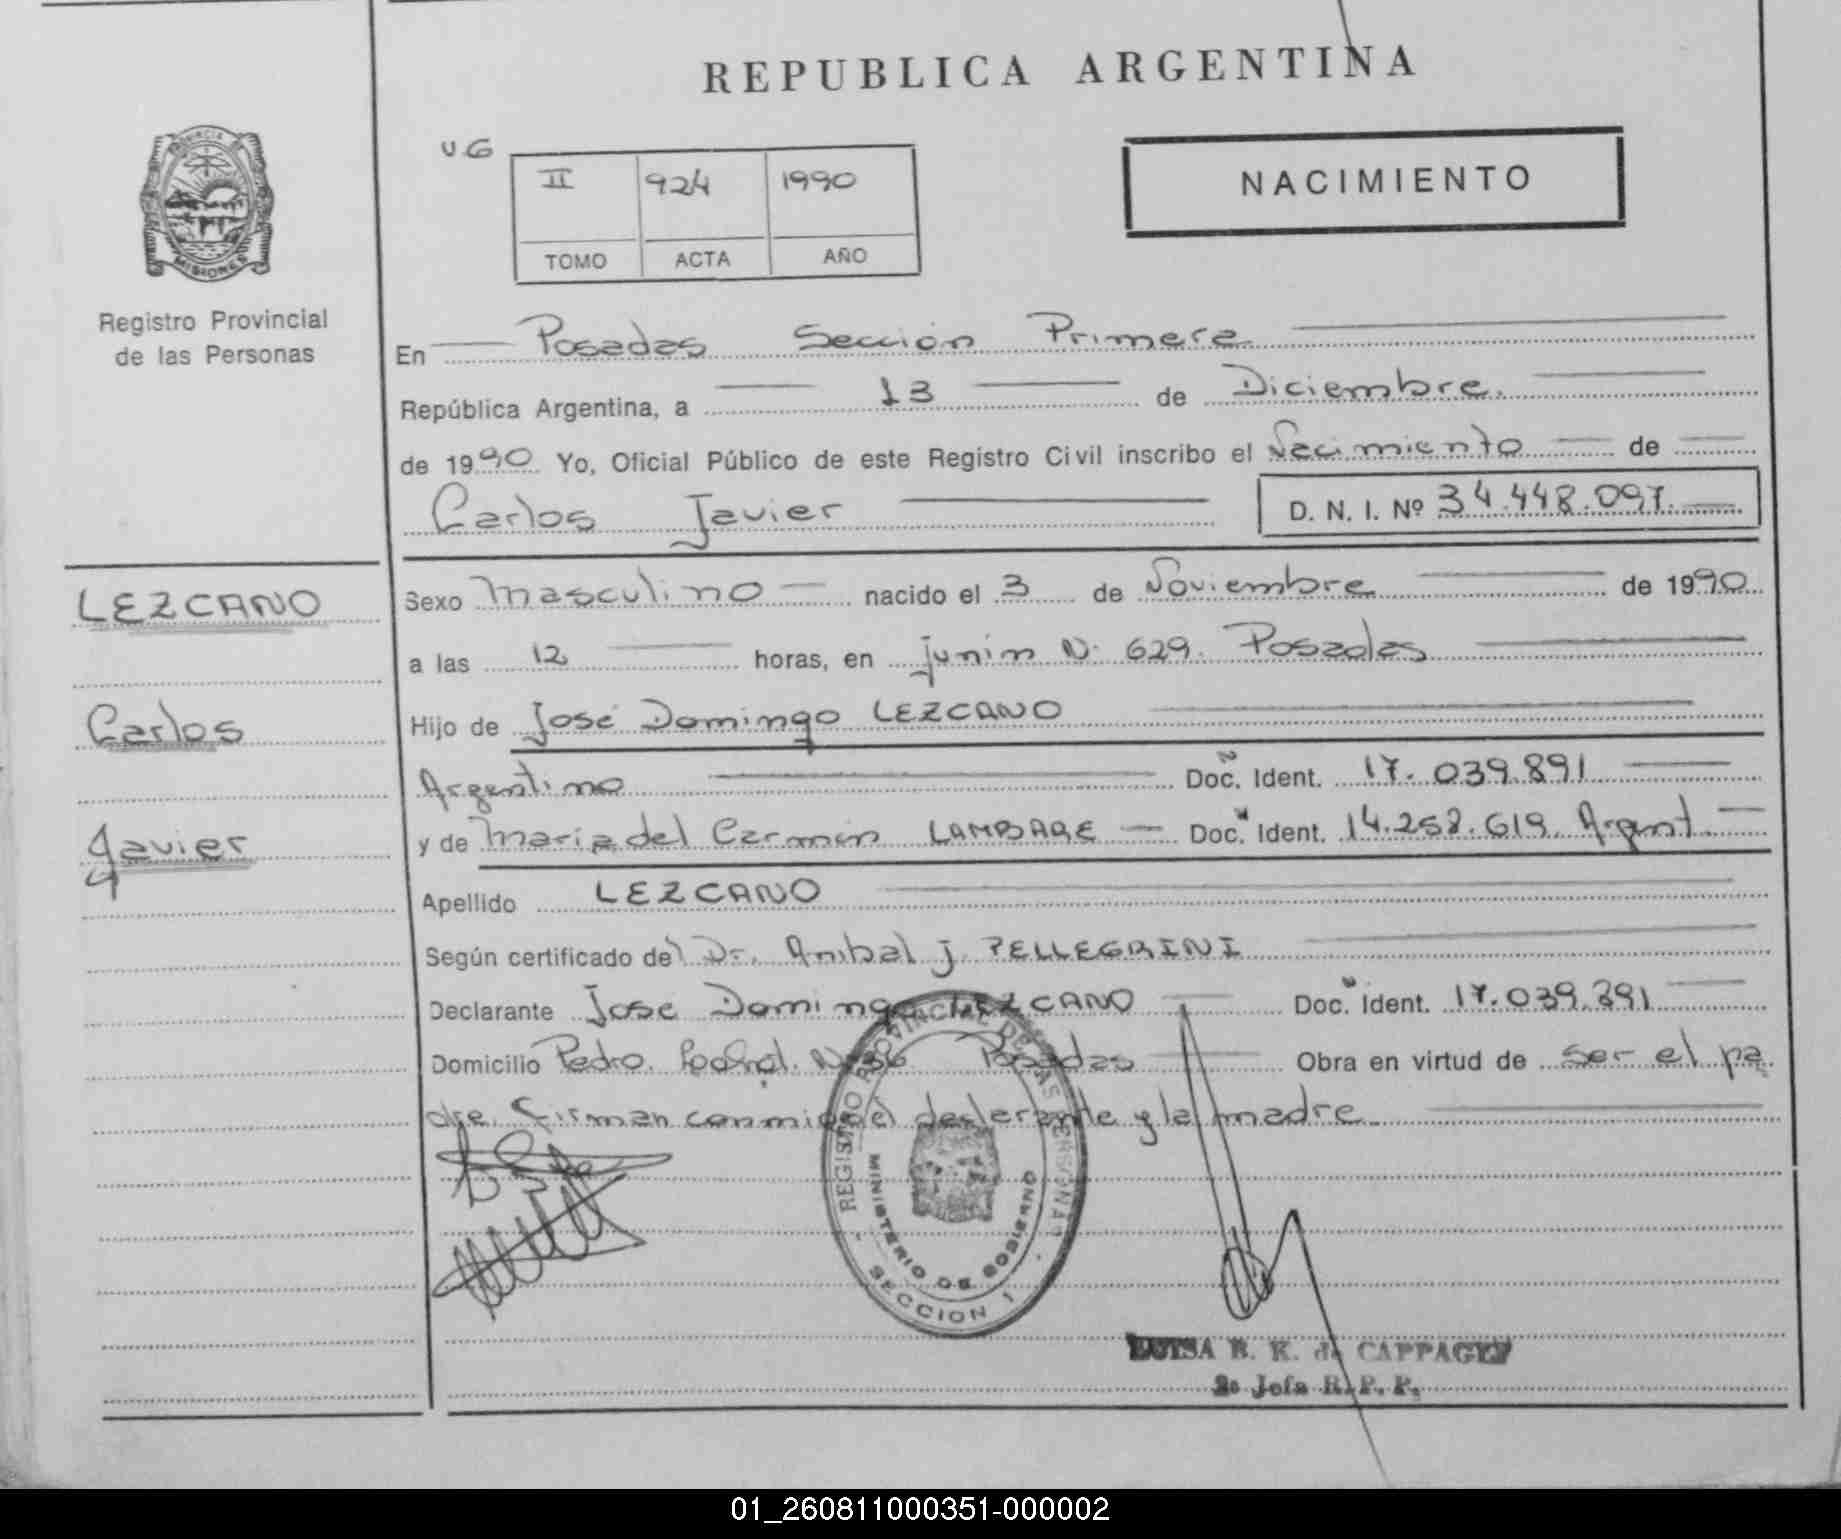 REPUBLICA ARGENTINA
PROVINCIA
MISIONES
Registro Provincial
de las Personas
UG
II 924 1990
TOMO ACTA AÑO
NACIMIENTO
En Posadas Sección Primera
República Argentina, a 13 de Diciembre.
de 1990 Yo, Oficial Público de este Registro Civil inscribo el Nacimiento de
Carlos Javier D. N. I. Nº 34.448.097.
LEZCANO
Carlos
Javier
Sexo masculino nacido el 3 de Noviembre de 1990
a las 12 horas, en Junin N. 629. Posadas
Hijo de José Domingo LEZCANO
Argentino Doc. Ident. 17.039.891
y de Maria del Carmen LAMBARE Doc. Ident. 14.258.619 Argent.
Apellido LEZCANO
Según certificado del Dr. Anibal J. PELLEGRINI
Declarante José Domingo LEZCANO Doc. Ident. 17.039.891
Domicilio Pedro. Posadas Obra en virtud de ser el pa
dre. Firman conmigo el declarante y la madre.
REGISTRO PROVINCIAL DE LAS PERSONAS
MINISTERIO DE GOBIERNO
SECCION 1
LUISA B. K. de
2a Jefa R. P. P.
01_260811000351-000002